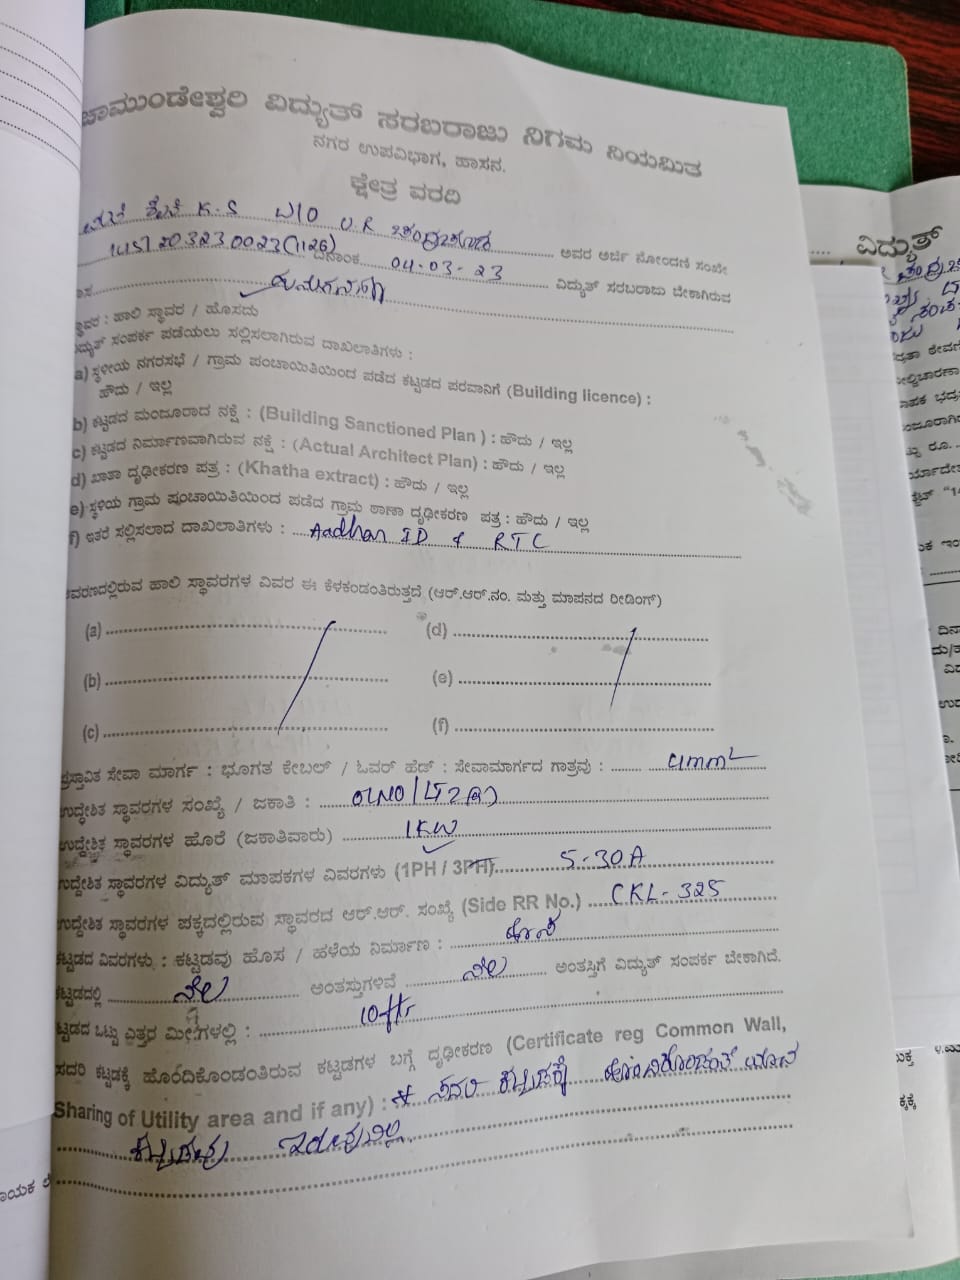 ಚಾಮುಂಡೇಶ್ವರಿ ವಿದ್ಯುತ್ ಸರಬರಾಜು ನಿಗಮ ನಿಯಮಿತ
ನಗರ ಉಪವಿಭಾಗ, ಹಾಸನ.
ಕ್ಷೇತ್ರ ವರದಿ
K.S W/O U.R ಚಂದ್ರಶೇಖರ ಅವರ ಅರ್ಜಿ ನೋಂದಣಿ ಸಂಖ್ಯೆ
203230023(1126) ದಿನಾಂಕ 04-03-23 ವಿದ್ಯುತ್ ಸರಬರಾಜು ಬೇಕಾಗಿರುವ
ಸ್ಥಾವರ : ಹಾಲಿ ಸ್ಥಾವರ / ಹೊಸದು
ವಿದ್ಯುತ್ ಸಂಪರ್ಕ ಪಡೆಯಲು ಸಲ್ಲಿಸಲಾಗಿರುವ ದಾಖಲಾತಿಗಳು :
a) ಸ್ಥಳೀಯ ನಗರಸಭೆ / ಗ್ರಾಮ ಪಂಚಾಯಿತಿಯಿಂದ ಪಡೆದ ಕಟ್ಟಡದ ಪರವಾನಿಗೆ (Building licence) :
ಹೌದು / ಇಲ್ಲ
b) ಕಟ್ಟಡದ ಮಂಜೂರಾದ ನಕ್ಷೆ : (Building Sanctioned Plan ) : ಹೌದು / ಇಲ್ಲ
c) ಕಟ್ಟಡದ ನಿರ್ಮಾಣವಾಗಿರುವ ನಕ್ಷೆ : (Actual Architect Plan) : ಹೌದು / ಇಲ್ಲ
d) ಖಾತಾ ದೃಢೀಕರಣ ಪತ್ರ : (Khatha extract) : ಹೌದು / ಇಲ್ಲ
e) ಸ್ಥಳಿಯ ಗ್ರಾಮ ಪಂಚಾಯಿತಿಯಿಂದ ಪಡೆದ ಗ್ರಾಮ ಠಾಣಾ ದೃಢೀಕರಣ ಪತ್ರ : ಹೌದು / ಇಲ್ಲ
f) ಇತರೆ ಸಲ್ಲಿಸಲಾದ ದಾಖಲಾತಿಗಳು : Aadhar ID & RTC
ಆವರಣದಲ್ಲಿರುವ ಹಾಲಿ ಸ್ಥಾವರಗಳ ವಿವರ ಈ ಕೆಳಕಂಡಂತಿರುತ್ತದೆ (ಆರ್.ಆರ್.ನಂ. ಮತ್ತು ಮಾಪನದ ರೀಡಿಂಗ್)
(a) (d)
(b) (e)
(c) (f)
ಪ್ರಸ್ತಾವಿತ ಸೇವಾ ಮಾರ್ಗ : ಭೂಗತ ಕೇಬಲ್ / ಓವರ್ ಹೆಡ್ : ಸೇವಾಮಾರ್ಗದ ಗಾತ್ರವು :
ಉದ್ದೇಶಿತ ಸ್ಥಾವರಗಳ ಸಂಖ್ಯೆ / ಜಕಾತಿ : 01NO/LT2(a)
ಉದ್ದೇಶಿತ ಸ್ಥಾವರಗಳ ಹೊರೆ (ಜಕಾತಿವಾರು) 1KW
ಉದ್ದೇಶಿತ ಸ್ಥಾವರಗಳ ವಿದ್ಯುತ್ ಮಾಪಕಗಳ ವಿವರಗಳು (1PH / 3PH) 5-30A
ಉದ್ದೇಶಿತ ಸ್ಥಾವರಗಳ ಪಕ್ಕದಲ್ಲಿರುವ ಸ್ಥಾವರದ ಆರ್.ಆರ್. ಸಂಖ್ಯೆ (Side RR No.) CKL-325
ಕಟ್ಟಡದ ವಿವರಗಳು : ಕಟ್ಟಡವು ಹೊಸ / ಹಳೆಯ ನಿರ್ಮಾಣ :
ಕಟ್ಟಡದಲ್ಲಿ ನೆಲ ಅಂತಸ್ತುಗಳಿವೆ ನೆಲ ಅಂತಸ್ತಿಗೆ ವಿದ್ಯುತ್ ಸಂಪರ್ಕ ಬೇಕಾಗಿದೆ.
ಕಟ್ಟಡದ ಒಟ್ಟು ಎತ್ತರ ಮೀ.ಗಳಲ್ಲಿ : 10ft
ಸದರಿ ಕಟ್ಟಡಕ್ಕೆ ಹೊಂದಿಕೊಂಡಂತಿರುವ ಕಟ್ಟಡಗಳ ಬಗ್ಗೆ ದೃಢೀಕರಣ (Certificate reg Common Wall,
Sharing of Utility area and if any) : * ಸದರಿ ಕಟ್ಟಡಕ್ಕೆ ಹೊಂದಿಕೊಂಡಂತೆ ಯಾವ
ಕಟ್ಟಡವು ಇರುವುದಿಲ್ಲ.
ವಿದ್ಯುತ್